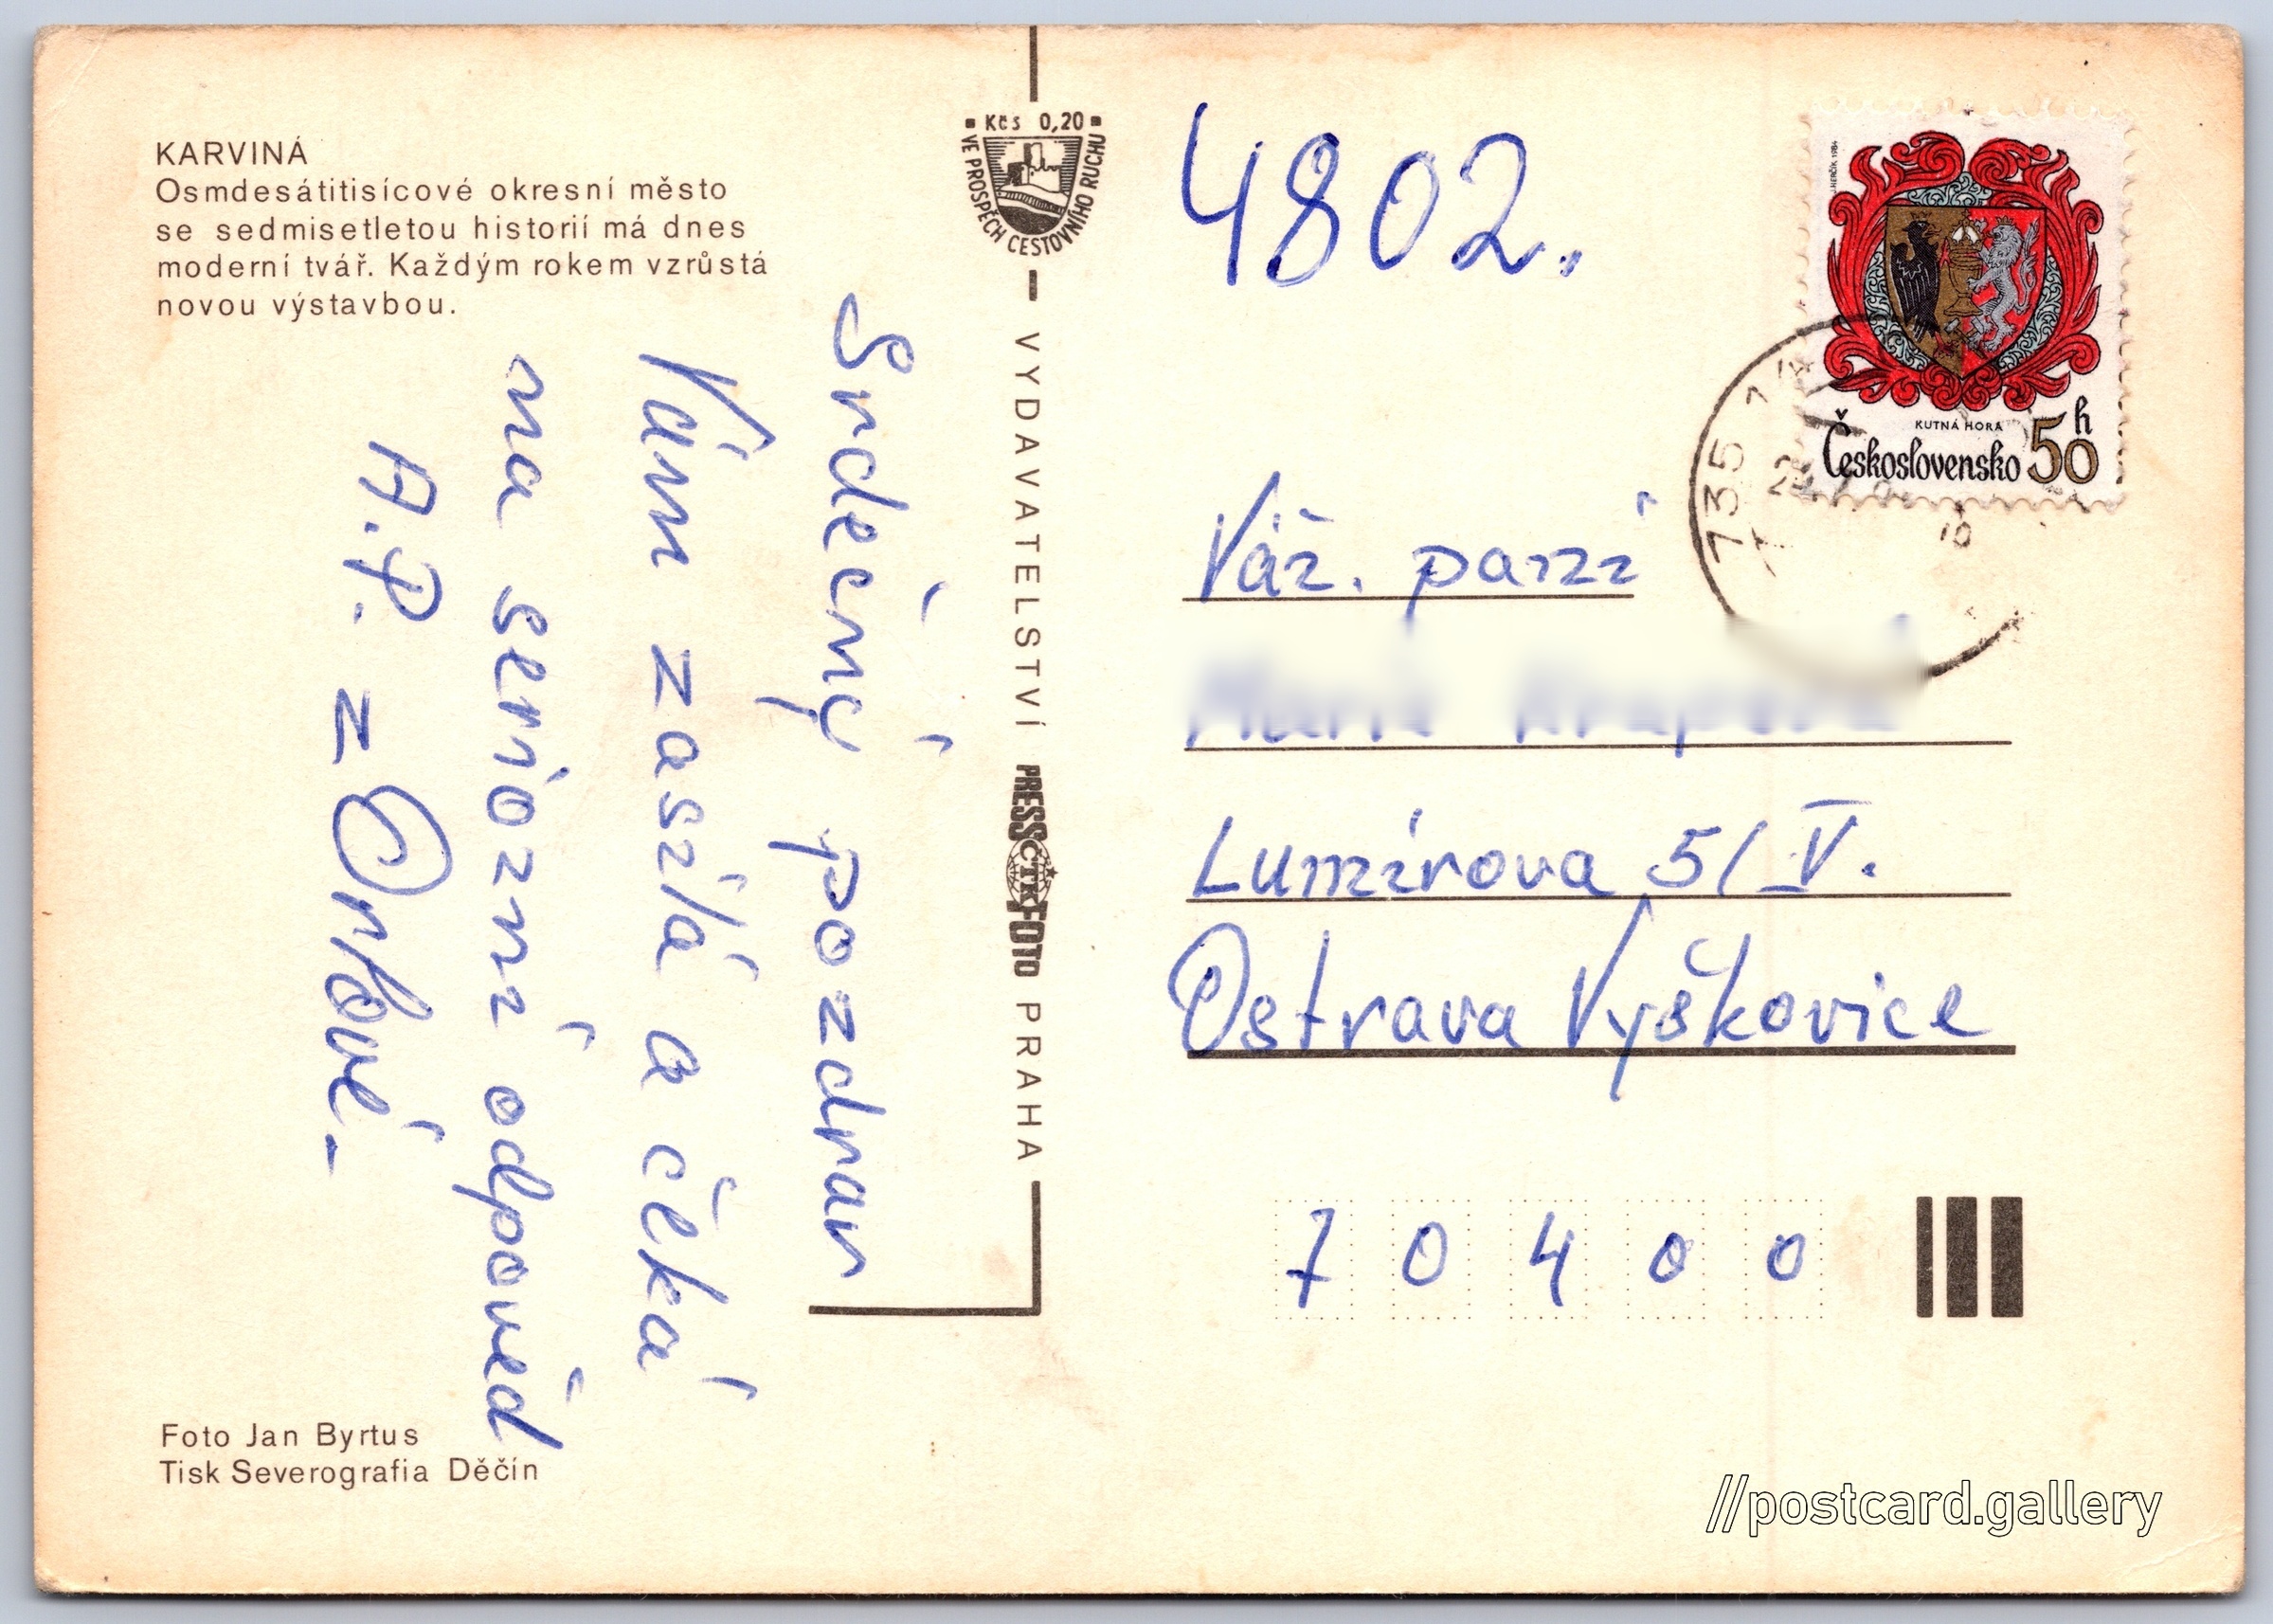 KARVINÁ
Osmdesátitisícové okresní město
se sedmisetletou historií má dnes
moderní tvář. Každým rokem vzrůstá
novou výstavbou.
Srdečný pozdrav
Vám zasílá a čeká
na seriozní odpověd
A.P. z Orlové.-
Foto Jan Byrtus
Tisk Severografia Děčín
Kčs 0,20
VE PROSPĚCH CESTOVNÍHO RUCHU
VYDAVATELSTVÍ PRESSFOTO PRAHA
ČTK
4802.
J. HERČÍK 1984
KUTNÁ HORA
Československo 50 h
735
Váž. paní
Lumírova 5/V.
Ostrava Vyškovice
70400
//postcard.gallery